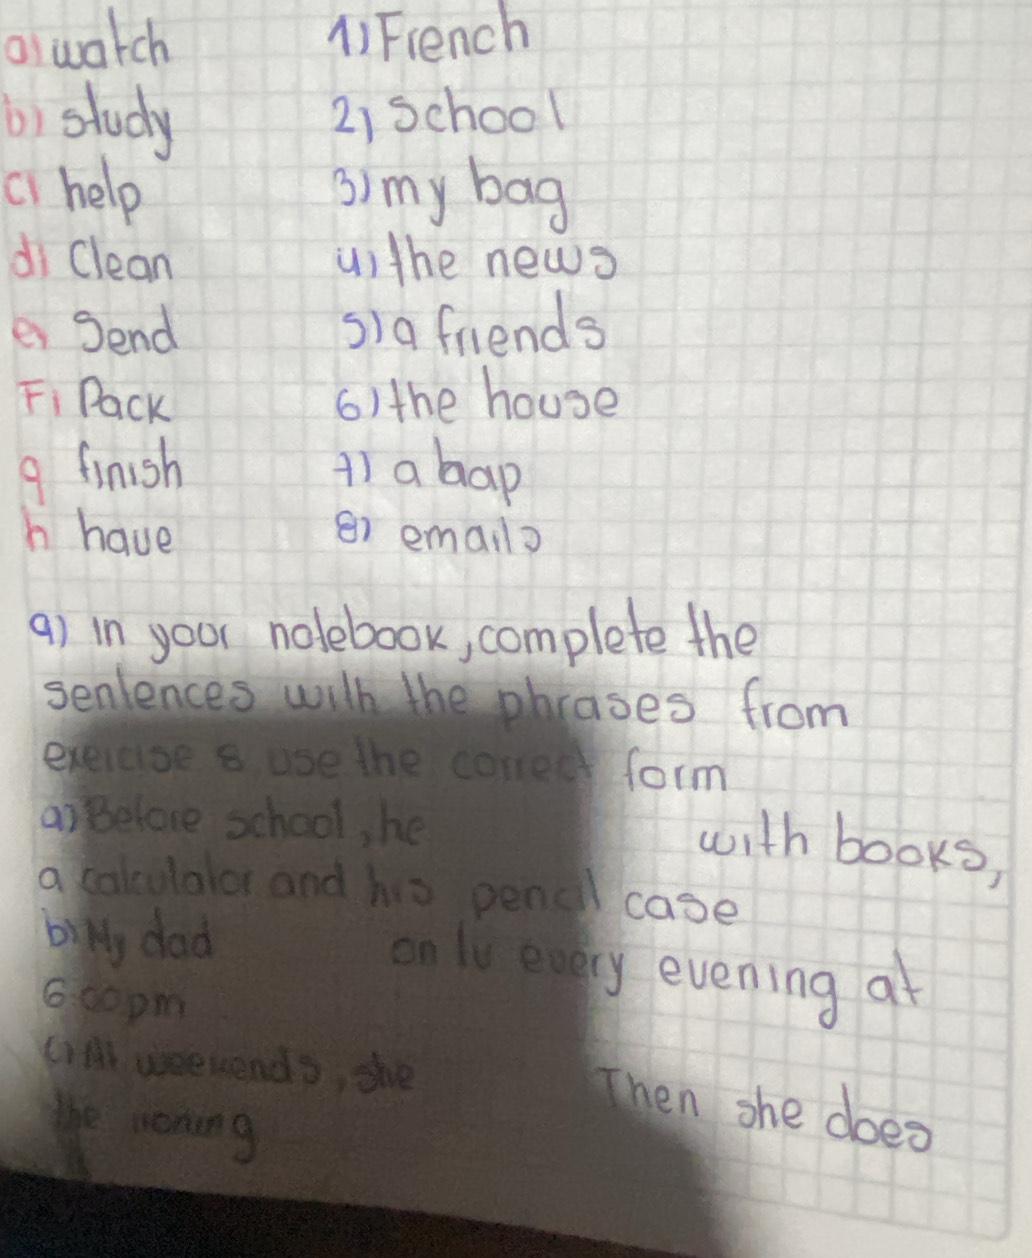 a) watch 1) French
b) study 2) School
c) help 3) my bag
d) Clean 4) the news
e) Send 5) a friends
F) Pack 6) the house
g finish 7) a bap
h have 8) emails
9) in your notebook, complete the
sentences with the phrases from
exercise 8 use the correct form
a) Before school, he with books,
a calculator and his pencil case
b) My dad on tv every evening at
6:00pm
c) At weekends, she Then she does
the ironing